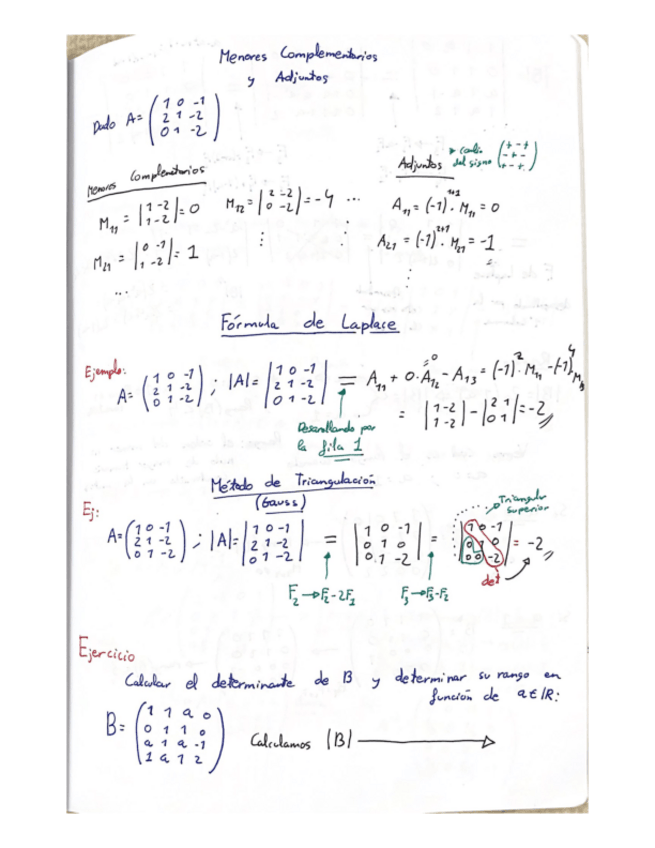 Menores Complementarios
y Adjuntos
Dado A = (1 0 -1
2 1 -2
0 1 -2)
Menores Complementarios
M₁₁ = |1 -2
1 -2| = 0
M₁₂ = |2 -2
0 -2| = -4 ...
M₂₁ = |0 -1
1 -2| = 1
...
Adjuntos
cambio
del signo (+ - +
- + -
+ - +)
A₁₁ = (-1)¹⁺¹ · M₁₁ = 0
A₂₁ = (-1)²⁺¹ · M₂₁ = -1
Fórmula de Laplace
Ejemplo:
A = (1 0 -1
2 1 -2
0 1 -2) ; |A| = |1 0 -1
2 1 -2
0 1 -2| = A₁₁ + 0·A₁₂ - A₁₃ = (-1)²·M₁₁ - (-1)⁴ M₁₃
=0
= |1 -2
1 -2| - |2 1
0 1| = -2
Desarrollando por
la fila 1
Método de Triangulación
(Gauss)
Ej:
A = (1 0 -1
2 1 -2
0 1 -2) ; |A| = |1 0 -1
2 1 -2
0 1 -2| = |1 0 -1
0 1 0
0 1 -2| = |1 0 -1
0 1 0
0 0 -2| = -2
Triangular
superior
det
F₂→F₂-2F₁
F₃→F₃-F₂
Ejercicio
Calcular el determinante de B y determinar su rango en
función de a∈ℝ:
B = (1 1 a 0
0 1 1 0
a 1 a -1
1 a 1 2)
Calculamos |B| →